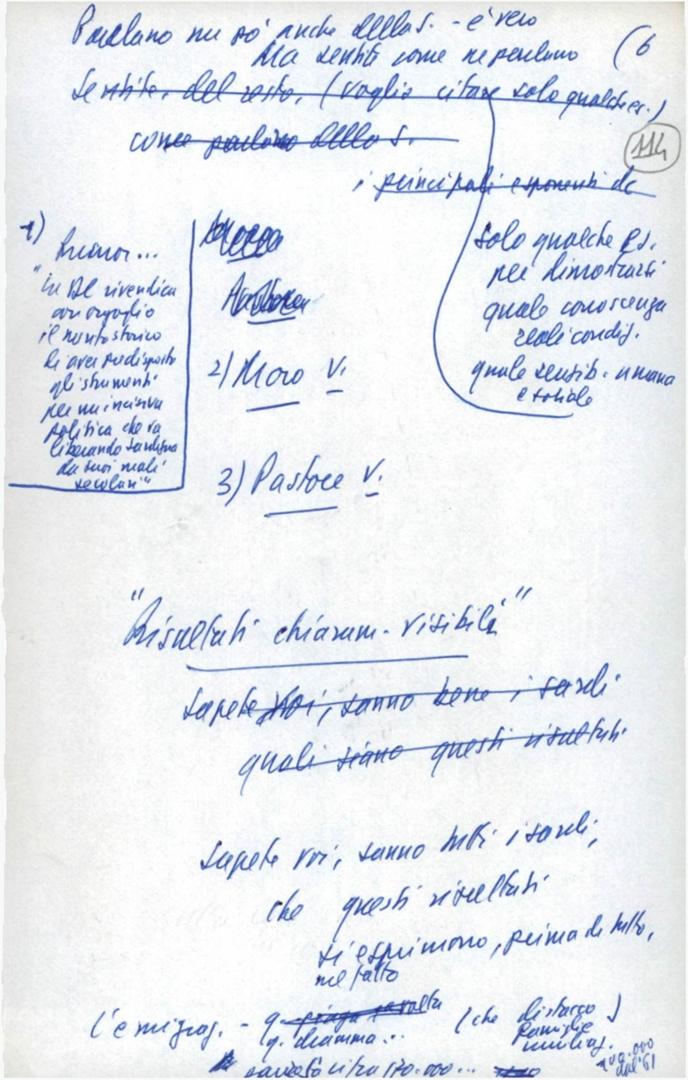 Parlano un po' anche della S. - è vero
Ma sentite come ne parlano
(6
Sentite, del resto, (voglio citare solo qualche es.)
come parlano della S.
114
i principali esponenti dc
solo qualche es.
per dimostrarvi
quale conoscenza
reali condiz.
quale sensib. umana
e sociale
1) Rumor...
"La DC rivendica
con orgoglio
il merito storico
di aver predisposto
gli strumenti
per un'incisiva
politica che va
liberando Sardegna
da suoi mali
secolari"
2) Moro V.
3) Pastore V.
"Risultati chiaram. visibili"
Sapete voi, sanno bene i sardi
quali siano questi risultati
Sapete voi, sanno tutti i sardi,
che questi risultati
si esprimono, prima di tutto,
nel fatto
L'emigraz. - q. piaga
q. dramma... (che distacco)
famiglie
oltre 170.000...
dal '61